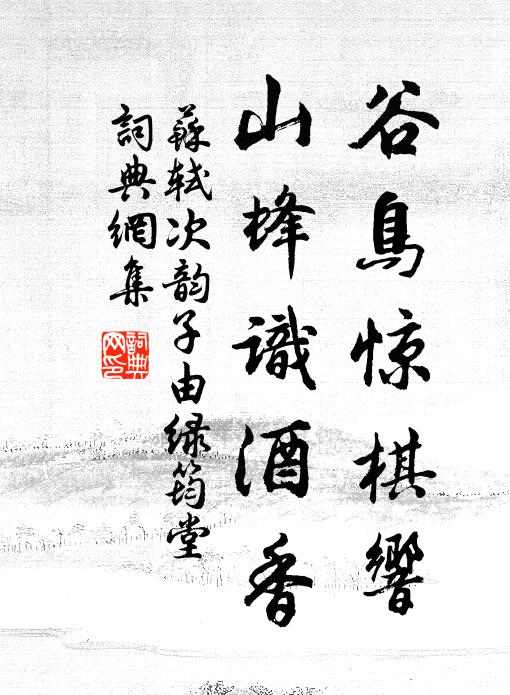 谷鳥惊棋響
山蜂識酒香
蘇軾次韵子由緑筠堂
詞典網集
詞典网印